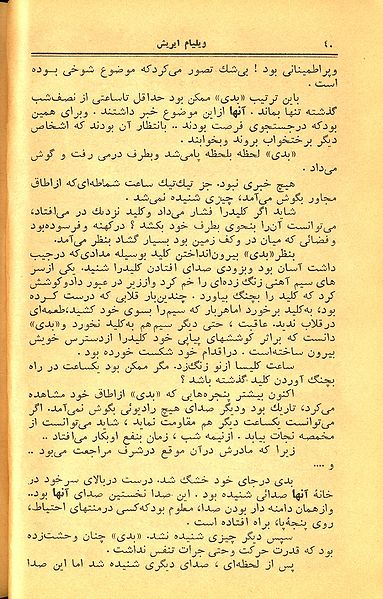 ۴۰
ویلیام ایریش
وپراطمینانی بود ! بی‌شك تصور می‌کردکه موضوع شوخی بـوده
است .
باین ترتیب «بدی» ممکن بود حداقل تاساعتی از نصف‌شب
گذشته تنها بماند . آنها ازاین موضوع خبر داشتند . وبرای همین
بودکه درجستجوی فرصت بودند .. بانتظار آن بودند که اشخاص
دیگر برختخواب بروند وبخوابند .
«بدی» لحظه بلحظه پامی‌شد وبطرف درمی رفت و گوش
می‌داد .
هیچ خبری نبود. جز تیك‌تیك ساعت شماطه‌ای‌که ازاطاق
مجاور بگوش می‌آمد، چیزی شنیده نمی‌شد .
شاید اگر کلیدرا فشار می‌داد وکلید نزدیك در می‌افتاد،
می‌توانست آن‌را بنحوی بطرف خود بکشد ؟ درکهنه و فرسوده‌بود
وفضائی که میان در وکف زمین بود بسیار گشاد بنظر می‌آمد.
بنظر«بدی» بیرون‌انداختن کلید بوسیله مدادی‌که درجیب
داشت آسان بود وبزودی صدای افتادن کلیدرا شنید. یکی ازسر
های سیم آهنی زنگ زده‌ای را خم کرد واززیر در عبور دادوکوشش
کرد که کلید را بچنگ بیاورد . چندین‌بار قلابی که درست کـرده
بود، به‌کلید برخورد اماهربار که سیم‌را بسوی خود کشید،طعمه‌ای
درقلاب ندید. عاقبت ، حتی دیگر سیم‌هم به‌کلید نخورد و«بدی»
دانست که براثر کوششهای پیاپی خود کلیدرا ازدسترس خویش
بیرون ساخته‌است . دراقدام خود شکست خورده بود .
ساعت کلیسا ازنو زنگ‌زد. مگر ممکن بود یکساعت در راه
بچنگ آوردن کلید گذشته باشد ؟
اکنون بیشتر پنجره‌هایی که «بدی» ازاطاق خود مشاهده
می‌کرد، تاریك بود ودیگر صدای هیچ رادیوئی بگوش نمی‌آمد. اگر
می‌توانست یکساعت دیگر هم مقاومت نماید ، شاید می‌توانست از
مخمصه نجات بیابد . ازنیمه شب ، زمان بنفع اوبکار می‌افتاد ..
زیرا که مادرش درآن موقع درشرف مراجعت می‌بود ..
و ....
بدی درجای خود خشک شد. درست دربالای سرخود در
خانهٔ آنها صدائی شنیده بود . این صدا نخستین صدای آنها بود..
وازهمان دامنه دار بودن صدا، معلوم بودکه‌کسی درمنتهای احتیاط،
روی پنجه‌پا، براه افتاده است .
سپس دیگر چیزی شنیده نشد. «بدی» چنان وحشت‌زده
بود که قدرت حرکت وحتی جرات تنفس نداشت .
پس از لحظه‌ای ، صدای دیگری شنیده شد اما این صدا